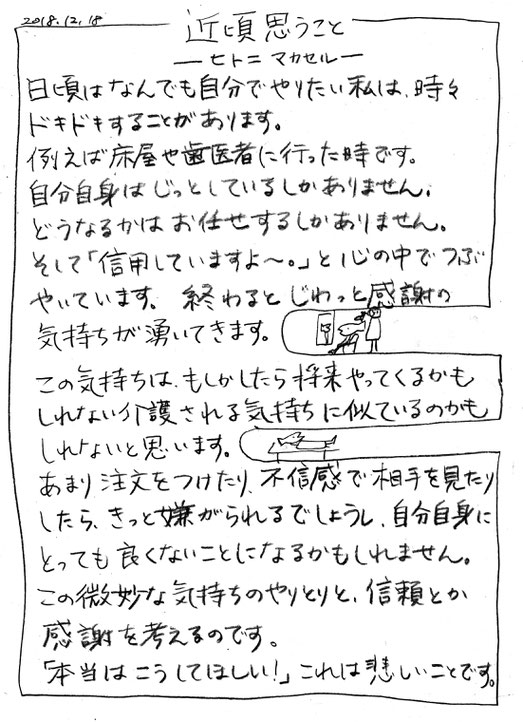 2018.12.18
近頃思うこと
―ヒトニ マカセル―
日頃はなんでも自分でやりたい私は、時々
ドキドキすることがあります。
例えば床屋や歯医者に行った時です。
自分自身はじっとしているしかありません、
どうなるかはお任せするしかありません。
そして「信用していますよ〜。」と心の中でつぶ
やいています。 終わるとじわっと感謝の
気持ちが湧いてきます。
この気持ちは、もしかしたら将来やってくるかも
しれない介護される気持ちに似ているのかも
しれないと思います。
あまり注文をつけたり、不信感で相手を見たり
したら、きっと嫌がられるでしょうし、自分自身に
とっても良くないことになるかもしれません。
この微妙な気持ちのやりとりと、信頼とか
感謝を考えるのです。
「本当はこうしてほしい!」これは悲しいことです。